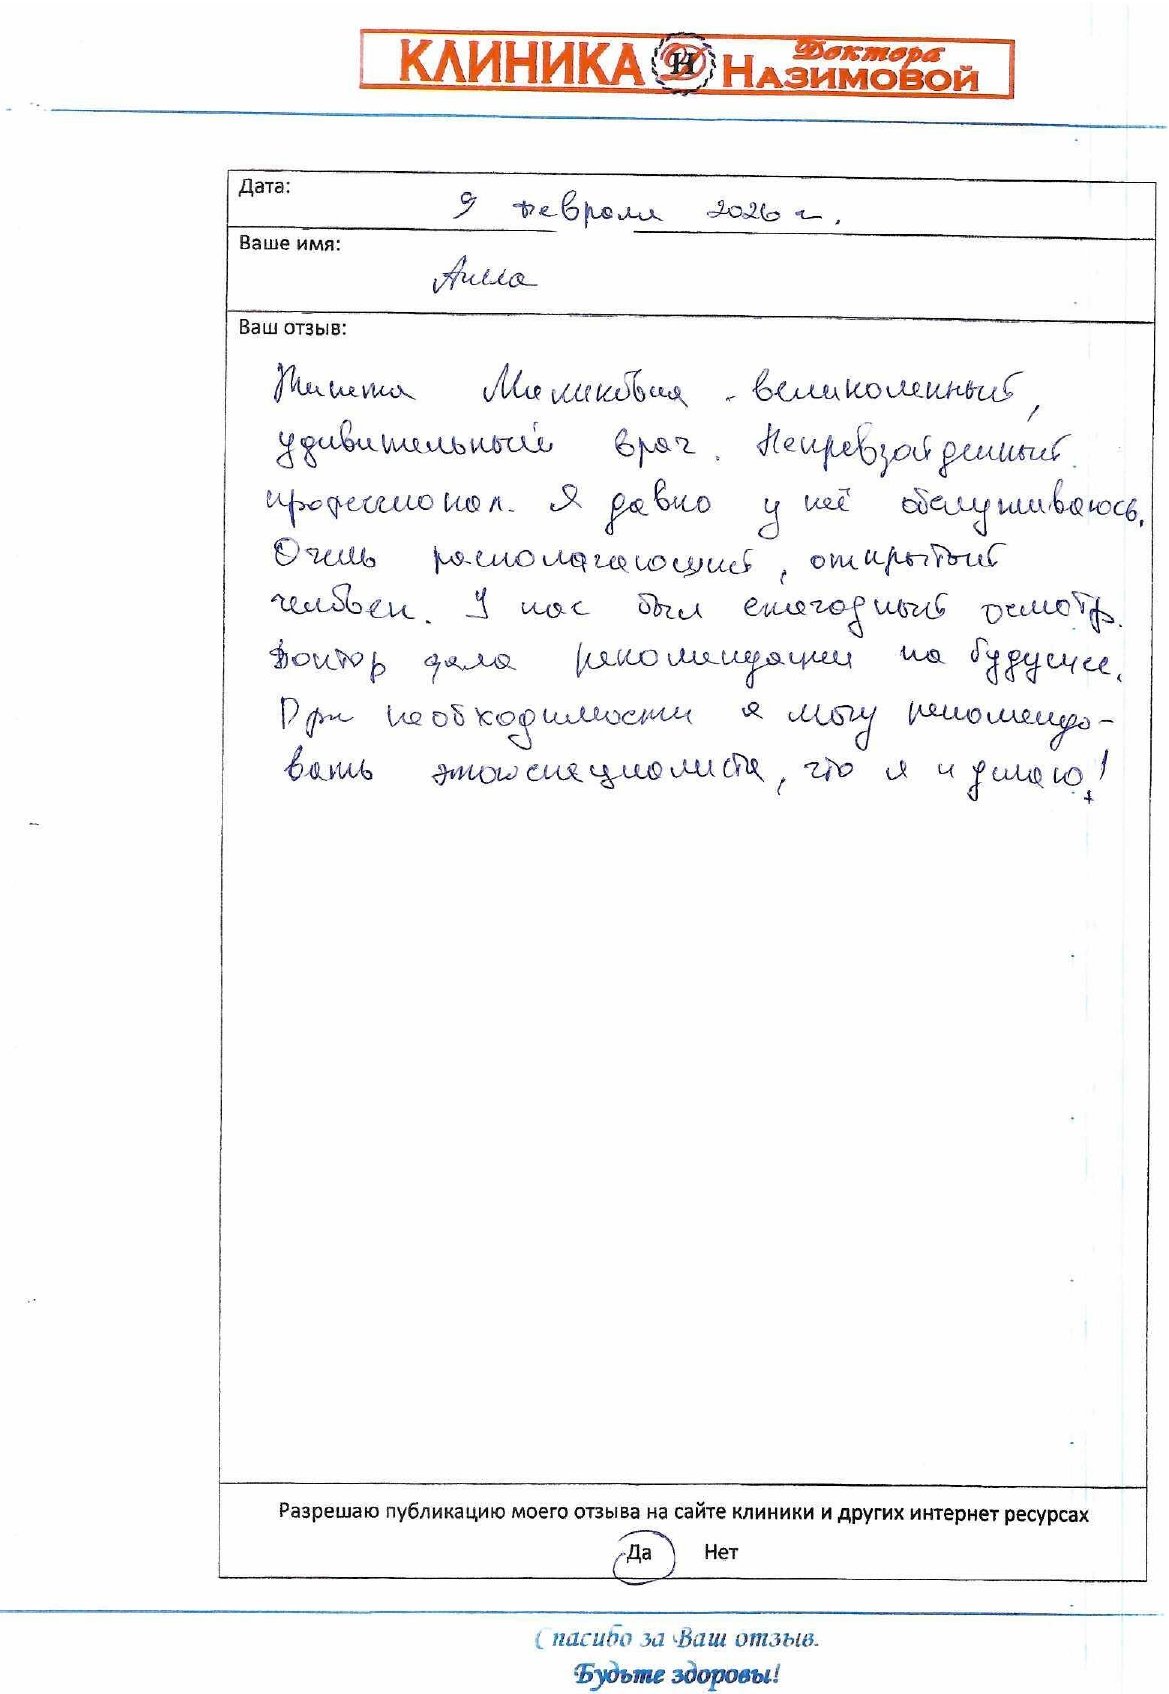 КЛИНИКА Доктора НАЗИМОВОЙ
Дата: 9 февраля 2026 г.
Ваше имя:
Алла
Ваш отзыв:
Маликовна - великолепный,
удивительный врач. Непревзойденный
профессионал. Я давно у неё обслуживаюсь.
Очень располагающий, открытый
человек. У нас был ежегодный осмотр.
Доктор дала рекомендации на будущее.
При необходимости я могу рекомендо-
вать этого специалиста, что я и делаю!
Разрешаю публикацию моего отзыва на сайте клиники и других интернет ресурсах
Да Нет
Спасибо за Ваш отзыв.
Будьте здоровы!